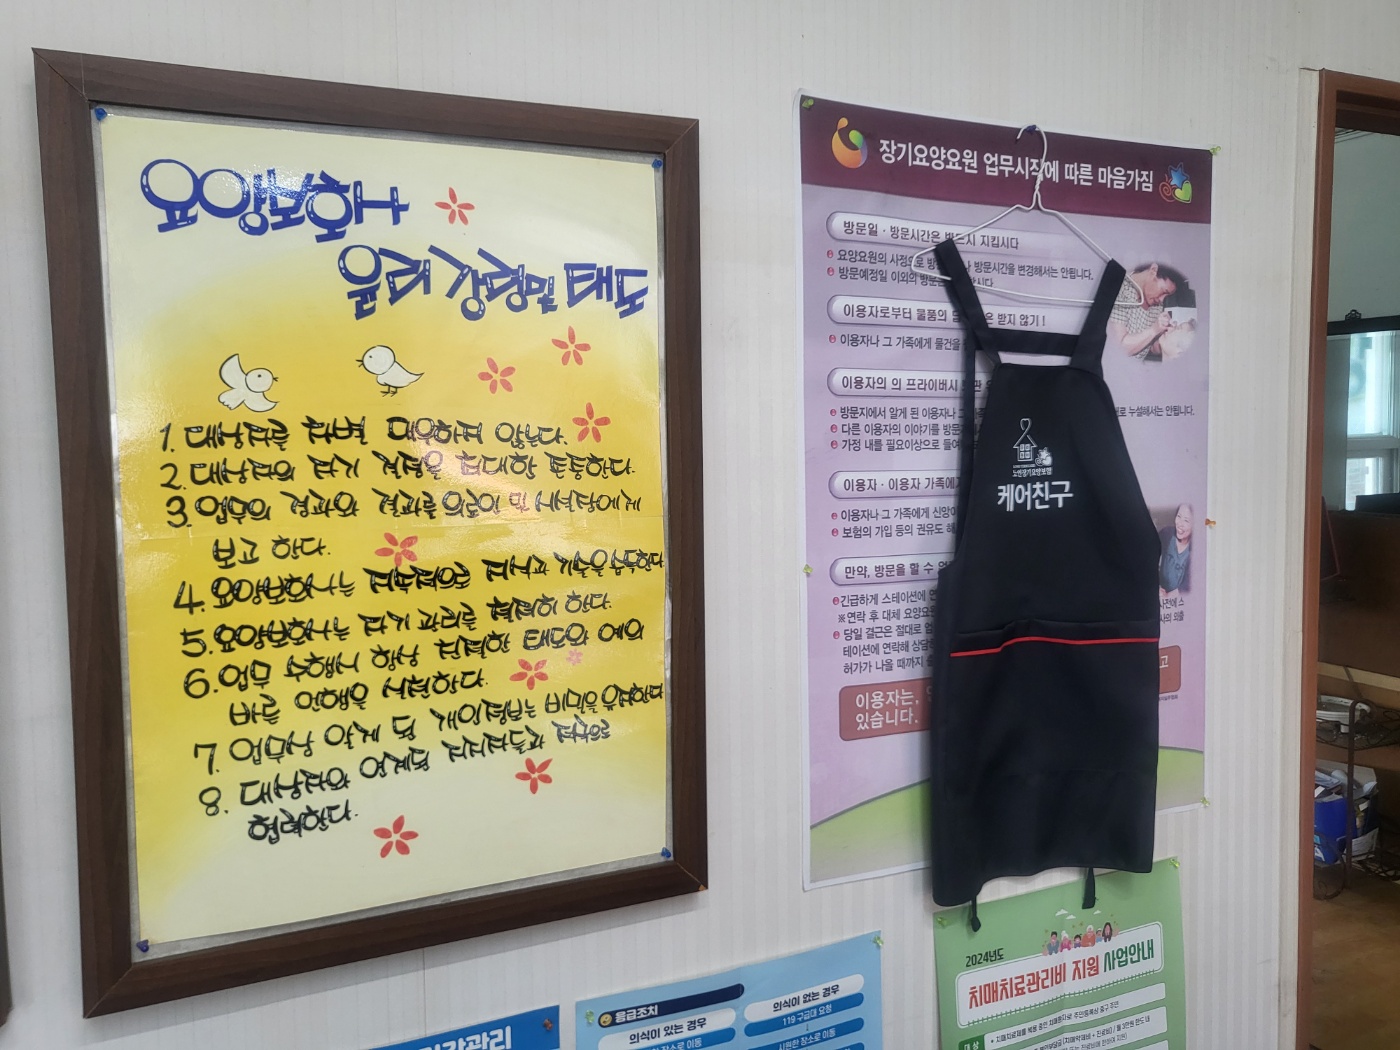 요양보호사
윤리 강령 및 태도
1. 대상자를 차별 대우하지 않는다.
2. 대상자의 자기 결정을 최대한 존중한다.
3. 업무의 경과와 결과를 의료인 및 시설장에게
보고 한다.
4. 요양보호사는 지속적으로 지식과 기술을 습득한다
5. 요양보호사는 자기 관리를 철저히 한다.
6. 업무 수행시 항상 친절한 태도와 예의
바른 언행을 실현한다.
7. 업무상 알게 된 개인정보는 비밀을 유지한다
8. 대상자와 연계된 지지자들과 적극적으로
협력한다.
장기요양요원 업무시작에 따른 마음가짐
방문일 · 방문시간은 반드시 지킵시다
요양요원의 사정으로 방문 방문시간을 변경해서는 안됩니다.
방문예정일 이외의 방문은 합시다
이용자로부터 물품의 은 받지 않기 !
이용자나 그 가족에게 물건을
이용자의 의 프라이버시
방문지에서 알게 된 이용자나 그 로 누설해서는 안됩니다.
다른 이용자의 이야기를 방문
가정 내를 필요이상으로 들여
이용자 · 이용자 가족에게
이용자나 그 가족에게 신앙이
보험의 가입 등의 권유도 해
만약, 방문을 할 수 없
긴급하게 스테이션에 연 사전에 스
※연락 후 대체 요양요원 사의 외출
당일 결근은 절대로 업
테이션에 연락해 상담
허가가 나올 때까지
이용자는, 고
있습니다.
노인장기요양보험
케어친구
2024년도
치매치료관리비 지원 사업안내
대 상
응급조치
의식이 있는 경우
의식이 없는 경우
119 구급대 요청
시원한 장소로 이동
장소로 이동
건강관리